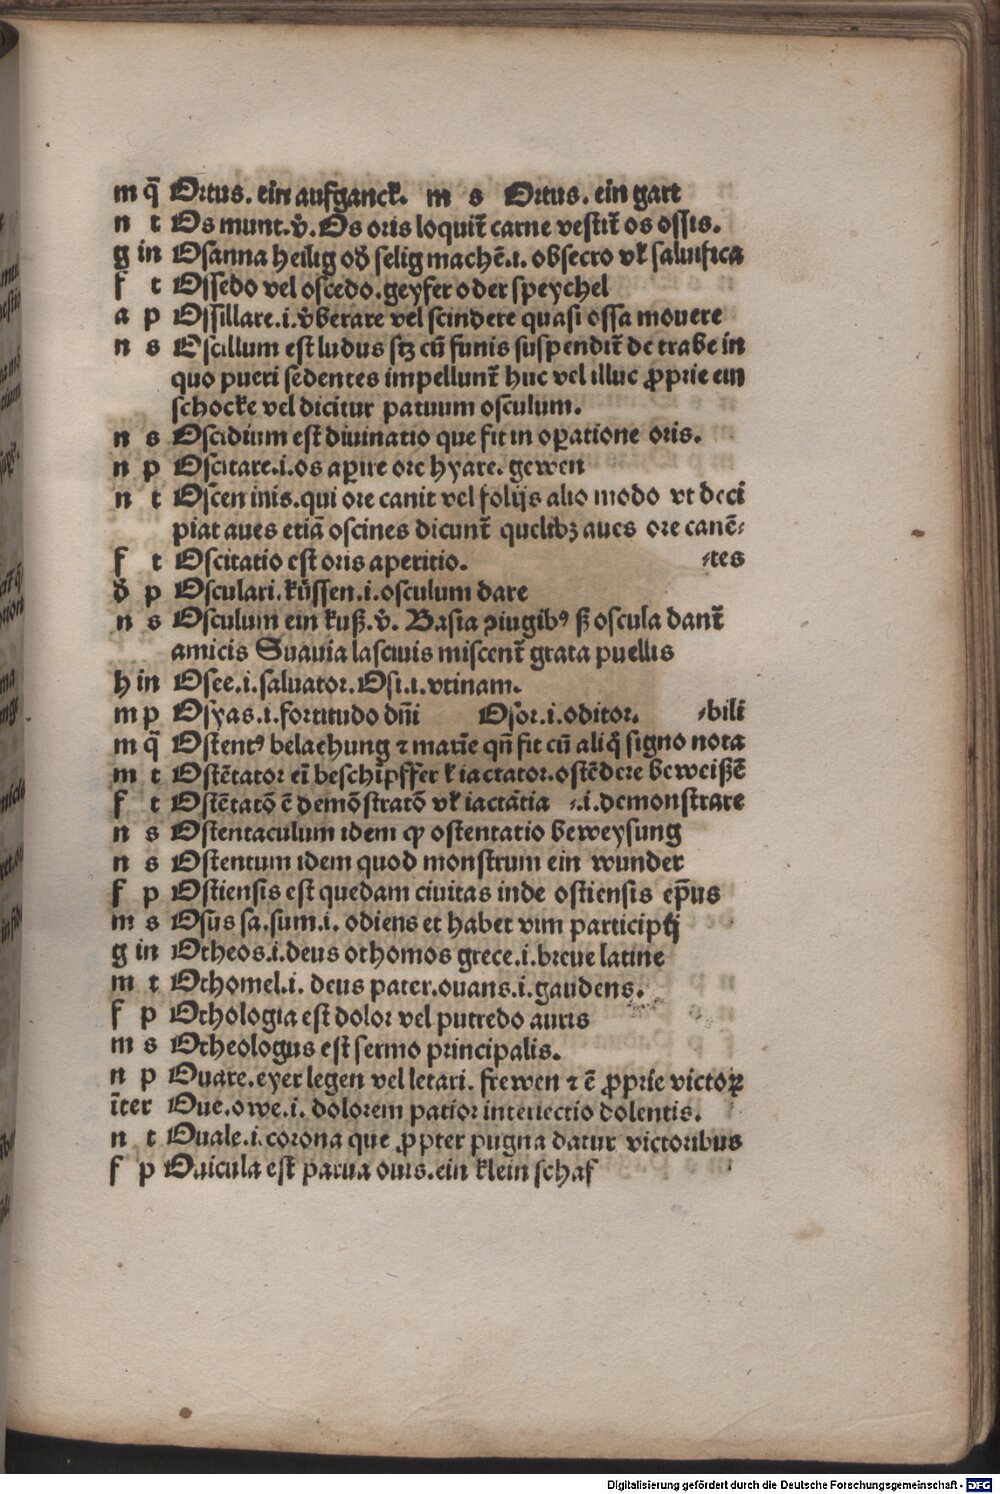 m q̄ Ortus. ein aufganck. m s Ortus. ein gart
n t Os munt.v̊. Os oris loquit̄ carne vestit̄ os ossis.
g in Osanna heilig od̄ selig machē.i. obsecro vl̄ saluifica
f t Ossedo vel oscedo.geyfer oder speychel
a p Ossillare.i.v̊berare vel scindere quasi ossa mouere
n s Oscillum est ludus sꝫ cū funis suspendit̄ de trabe in
quo pueri sedentes impellunt̄ huc vel illuc ꝓprie ein
schocke vel dicitur paruum osculum.
n s Oscidium est diuinatio que fit in oꝑatione oris.
n p Oscitare.i.os aꝑire ore hyare. gewen
n t Oscen inis.qui ore canit vel folijs alio modo vt deci
piat aues etiā oscines dicunt̄ quelibꝫ aues ore canē⸗
f t Oscitatio est oris aperitio. ⸗tes
d̄ p Osculari.küssen.i.osculum dare
n s Osculum ein kuß.v̊. Basia ꝯiugibꝰ ß oscula dant̄
amicis Suauia lasciuis miscent̄ grata puellis
h in Osee.i.saluator. Osi.i.vtinam.
m p Osyas.i.fortitudo dn̄i Osor.i.oditor. ⸗bili
m q̄ Ostentꝰ belachung ⁊ maxīe qn̄ fit cū aliq̊ signo nota
m t Ostētator eī beschīpffer vl̄ iactator.ostēdere beweißē
f t Ostētatō ē demōstratō vl̄ iactātia ⸗.i.demonstrare
n s Ostentaculum idem qꝫ ostentatio beweysung
n s Ostentum idem quod monstrum ein wunder
f p Ostiensis est quedam ciuitas inde ostiensis ep̄us
m s Osūs sa.sum.i. odiens et habet vim participij
g in Otheos.i.deus othomos grece.i.breue latine
m t Othomel.i. deus pater.ouans.i.gaudens.
f p Othologia est dolor vel putredo auris
m s Otheologus est sermo principalis.
n p Ouare.eyer legen vel letari. frewen ⁊ ē ꝓprie victoꝝ
īter Oue.owe.i. dolorem patior interiectio dolentis.
n t Ouale.i.corona que ꝓpter pugna datur victoribus
f p Ouicula est parua ouis.ein klein schaf
Digitalisierung gefördert durch die Deutsche Forschungsgemeinschaft - DFG